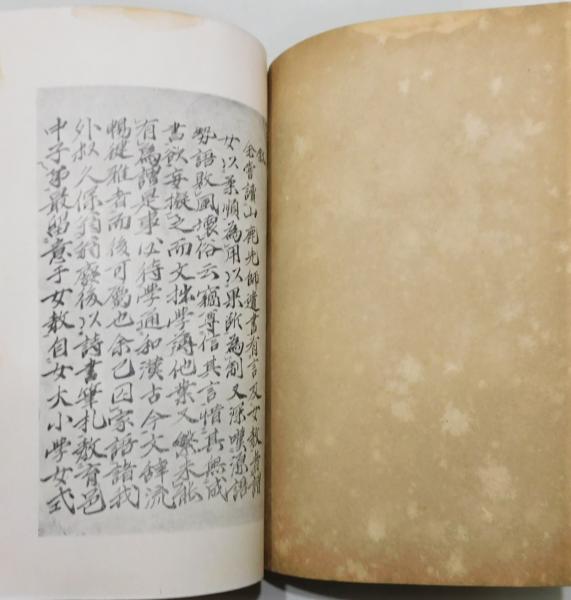 余嘗讀山鹿先師遺書有言及女教者謂
女以柔順為用以果断為制又深嘆源語
勢語敗風壊俗云竊尊信其言惜其無成
書欲妄擬之而文拙學薄他業又繁未能
有為謂是事必待學通和漢古今文辞流
暢健雅者而後可属也余已因家語諸我
外叔久保翁翁廢後以詩書筆札教育邑
中子弟最留意于女教自女大小學女式